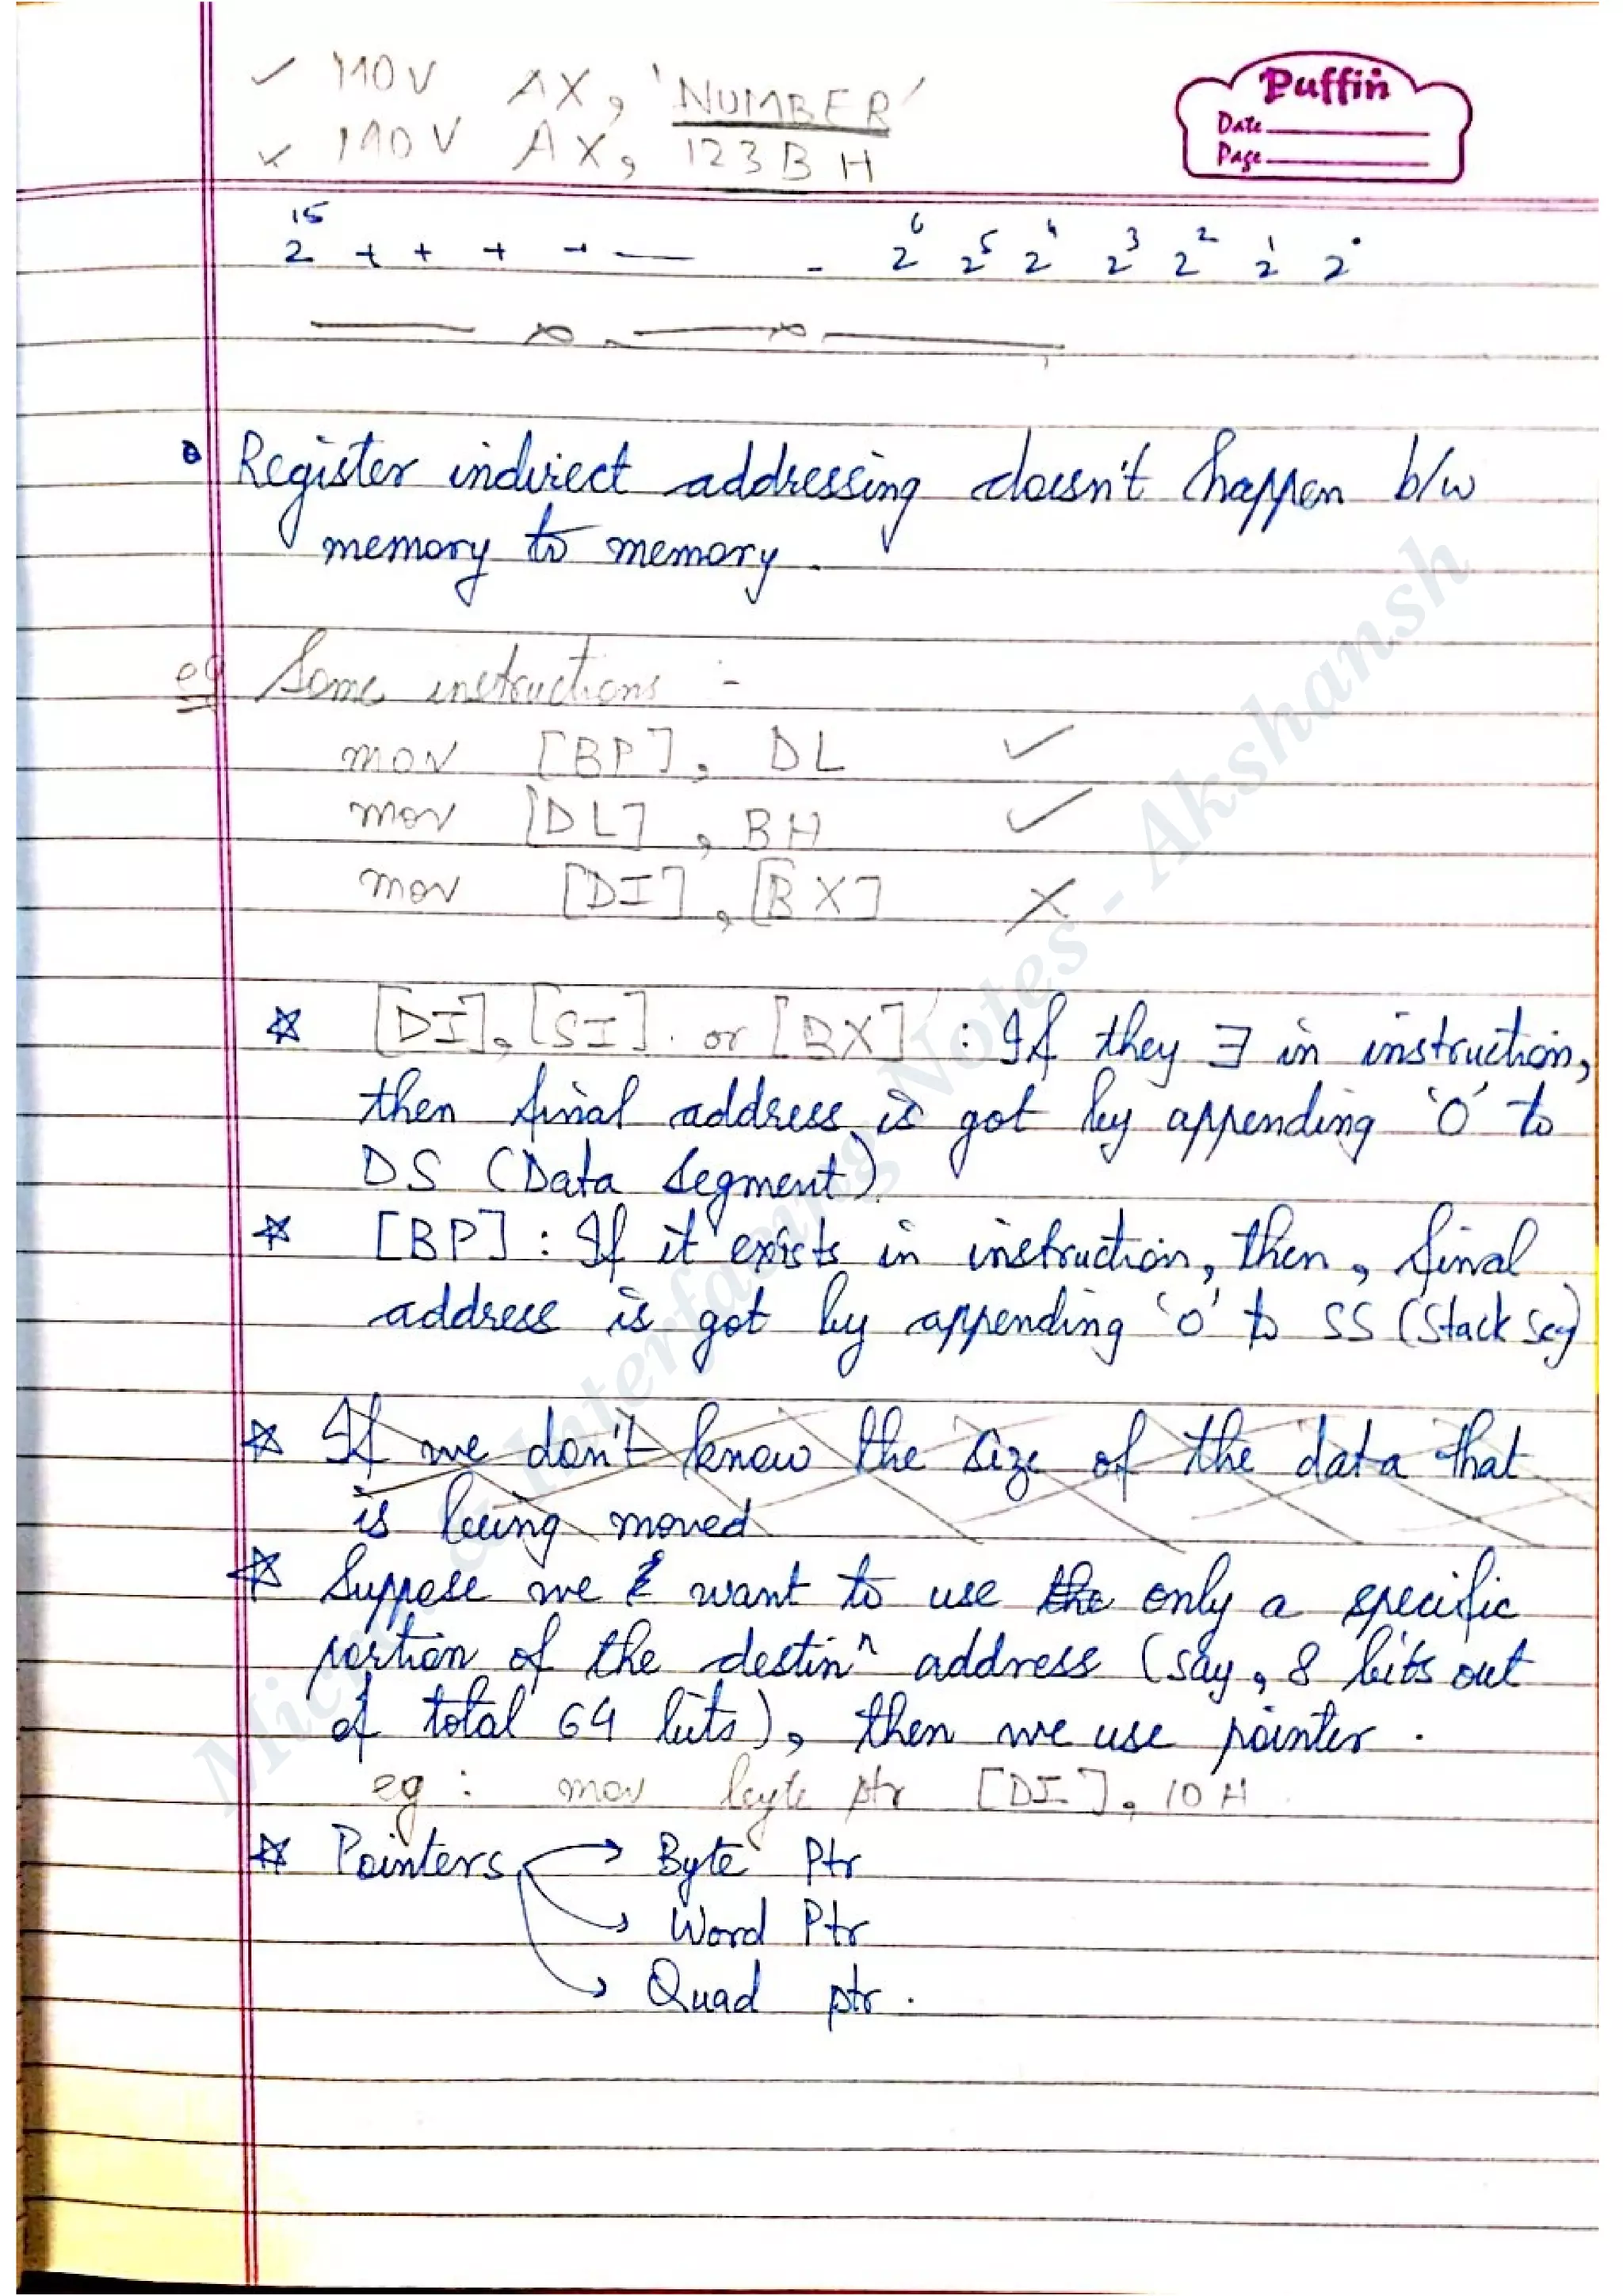 ✓ MOV AX, 'NUMBER'
Puffin
Date
Page
✓ MOV AX, 123BH
2^15 + + + + — - 2^6 2^5 2^4 2^3 2^2 2^1 2^0
• Register indirect addressing doesn't happen b/w
memory to memory.
eg Some instructions :-
mov [BP], DL ✓
mov [DL], BH ✓
mov [DI], [BX] ✗
☆ [DI], [SI] or [BX] : If they ∃ in instruction,
then final address is got by appending '0' to
DS (Data Segment)
☆ [BP] : If it exists in instruction, then, final
address is got by appending '0' to SS (Stack Seg)
☆ If we don't know the size of the data that
is being moved
☆ Suppose we want to use the only a specific
portion of the destinⁿ address (say, 8 bits out
of total 64 bits), then we use pointer.
eg : mov byte ptr [DI], 10H
☆ Pointers → Byte Ptr
→ Word Ptr
→ Quad ptr.
& Interfacing Notes - Akshansh